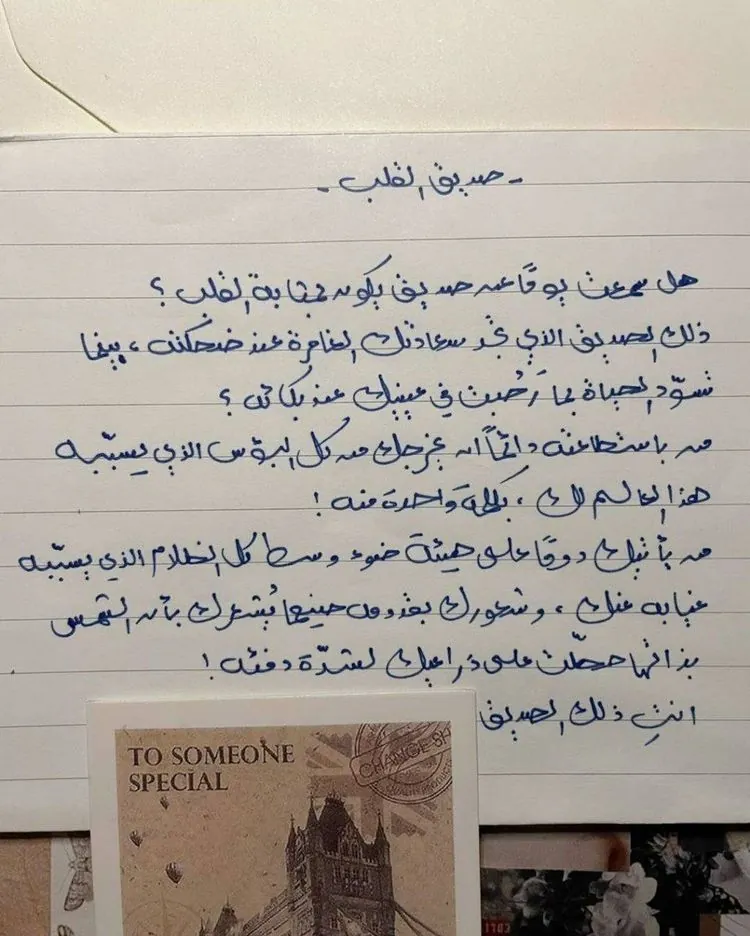 - صديق القلب -
هل سمعت يومًا عن صديق يكون بمثابة القلب ؟
ذلك الصديق الذي تجد سعادتك الغامرة عند ضحكته ، بينما
تسوّد الحياة بما رَحُبت في عينيك عند بكائه ؟
من باستطاعته دائمًا أن يخرجك من كل البؤس الذي يسببه
هذا العالم لك ، بكلمة واحدة منه !
من يأتيك دومًا على هيئة ضوء وسط كل الظلام الذي يسببه
غيابه عنك ، وشعورك بقدومه حينما يُشعرك بأن الشمس
بذاتها حطّت على ذراعيك لشدّة دفئه !
انتِ ذلك الصديق
TO SOMEONE
SPECIAL
CHANGE SH
1103